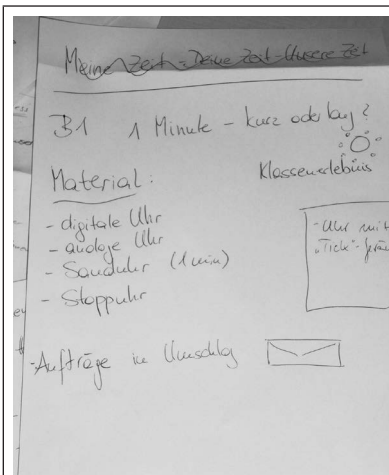 Meine Zeit - Deine Zeit - Unsere Zeit
B1 1 Minute - kurz oder lang?
Klassenerlebnis
Material:
- digitale Uhr
- analoge Uhr
- Sanduhr (1 min)
- Stoppuhr
- Uhr mit
"Tick"-
- Aufträge im Umschlag